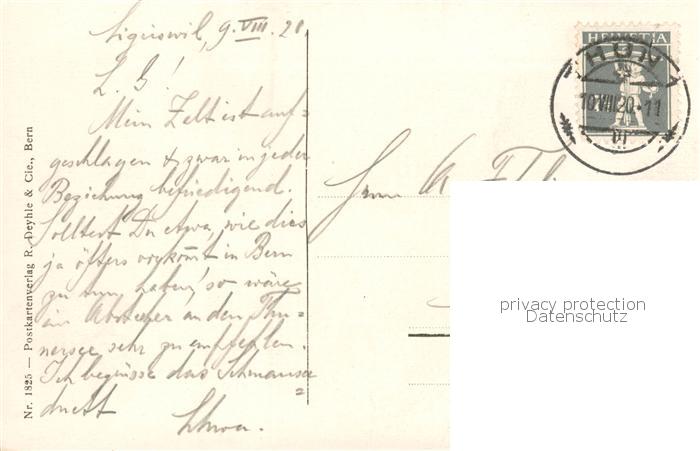 Sigriswil, 9. VIII. 20
L. G.!
Mein Zelt ist auf-
geschlagen & zwar in jeder
Beziehung befriedigend.
Solltest Du etwa, wie dies
ja öfters vorkomt in Bern
zu tun, haben, so wäre
ein Abstecher an den Thu=
nersee sehr zu empfehlen.
Ich begrüsse das
duett
Nr. 1825 — Postkartenverlag R. Deyhle & Cie., Bern
HELVETIA
THUN
10.VIII.20.-11
Herrn
privacy protection
Datenschutz